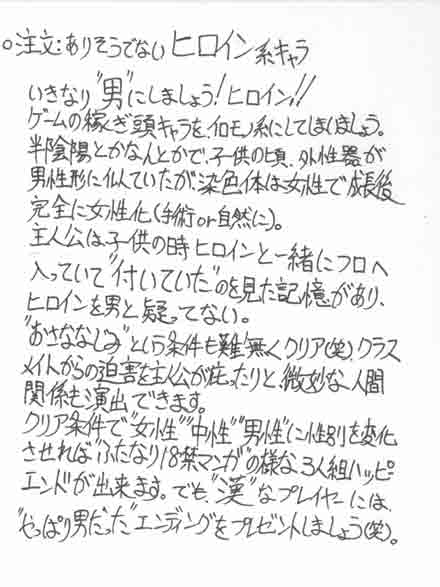 ○注文:ありそうでない ヒロイン系キャラ
いきなり"男"にしましょう!ヒロイン!!
ゲームの稼ぎ頭キャラを、イロモノ系にしてしまいましょう。
半陰陽とかなんとかで、子供の頃、外性器が
男性形に似ていたが、染色体は女性で成長後
完全に女性化(手術or自然に)。
主人公は子供の時ヒロインと一緒にフロへ
入っていて"付いていた"のを見た記憶があり、
ヒロインを男と疑ってない。
"おさななじみ"という条件も難無くクリア(笑)、クラス
メイトからの迫害を主人公が庇ったりと、微妙な人間
関係も演出できます。
クリア条件で"女性""中性""男性"に性別を変化
させれば"ふたなり18禁マンガ"の様な3人組ハッピ
エンドが出来ます。でも、"漢"なプレイヤーには、
"やっぱり男だった"エンディングをプレゼントしましょう(笑)。